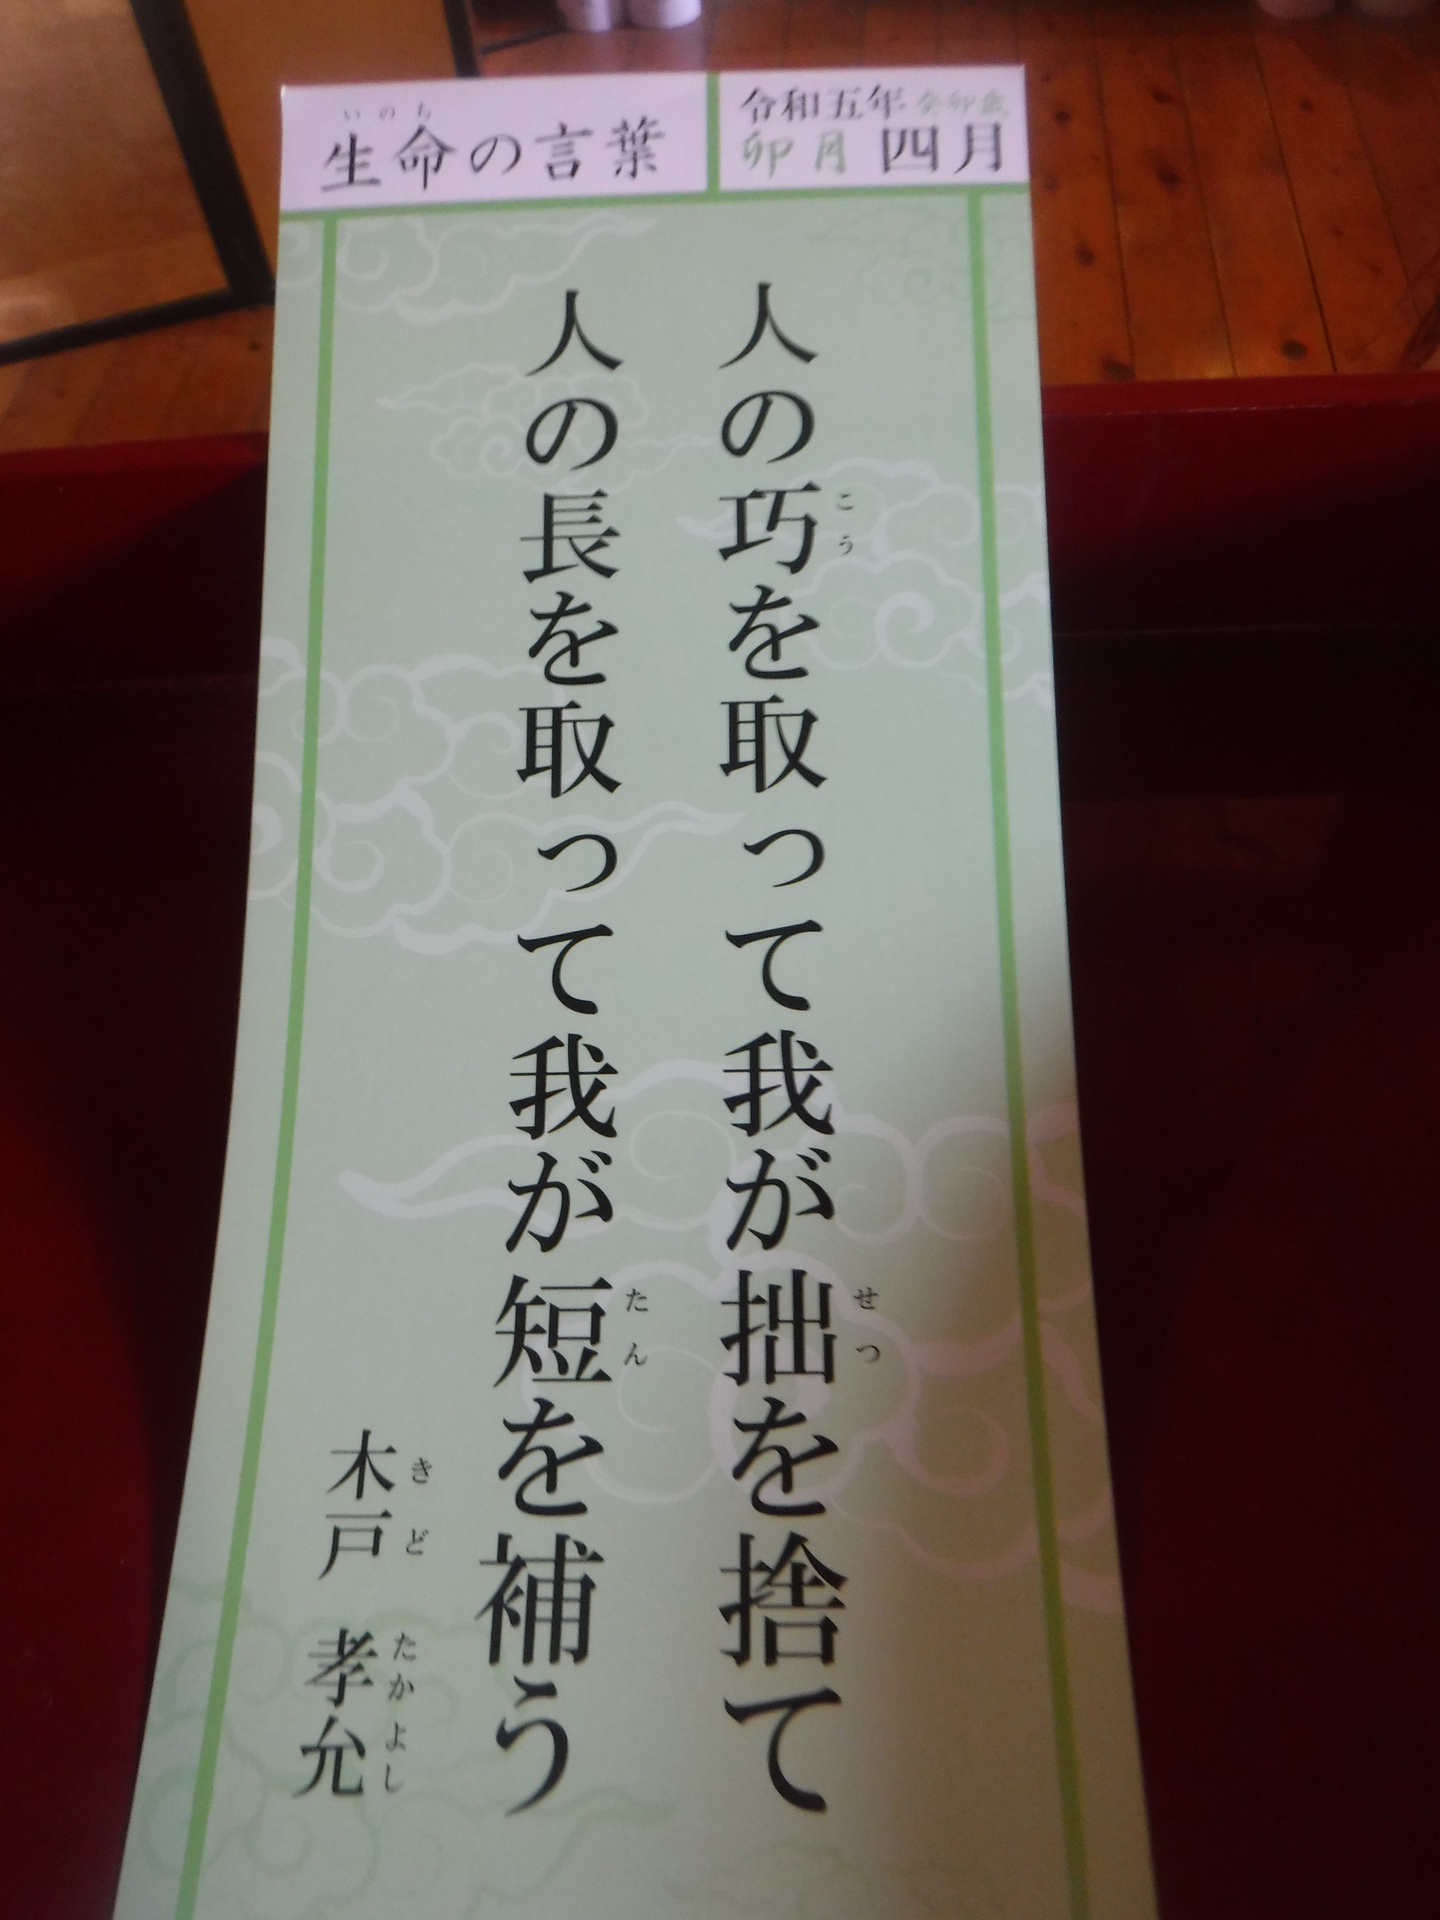 令和五年 癸卯歳
卯月 四月
生命の言葉
いのち
人の巧を取って我が拙を捨て
こう
せつ
人の長を取って我が短を補う
たん
木戸 孝允
きど たかよし